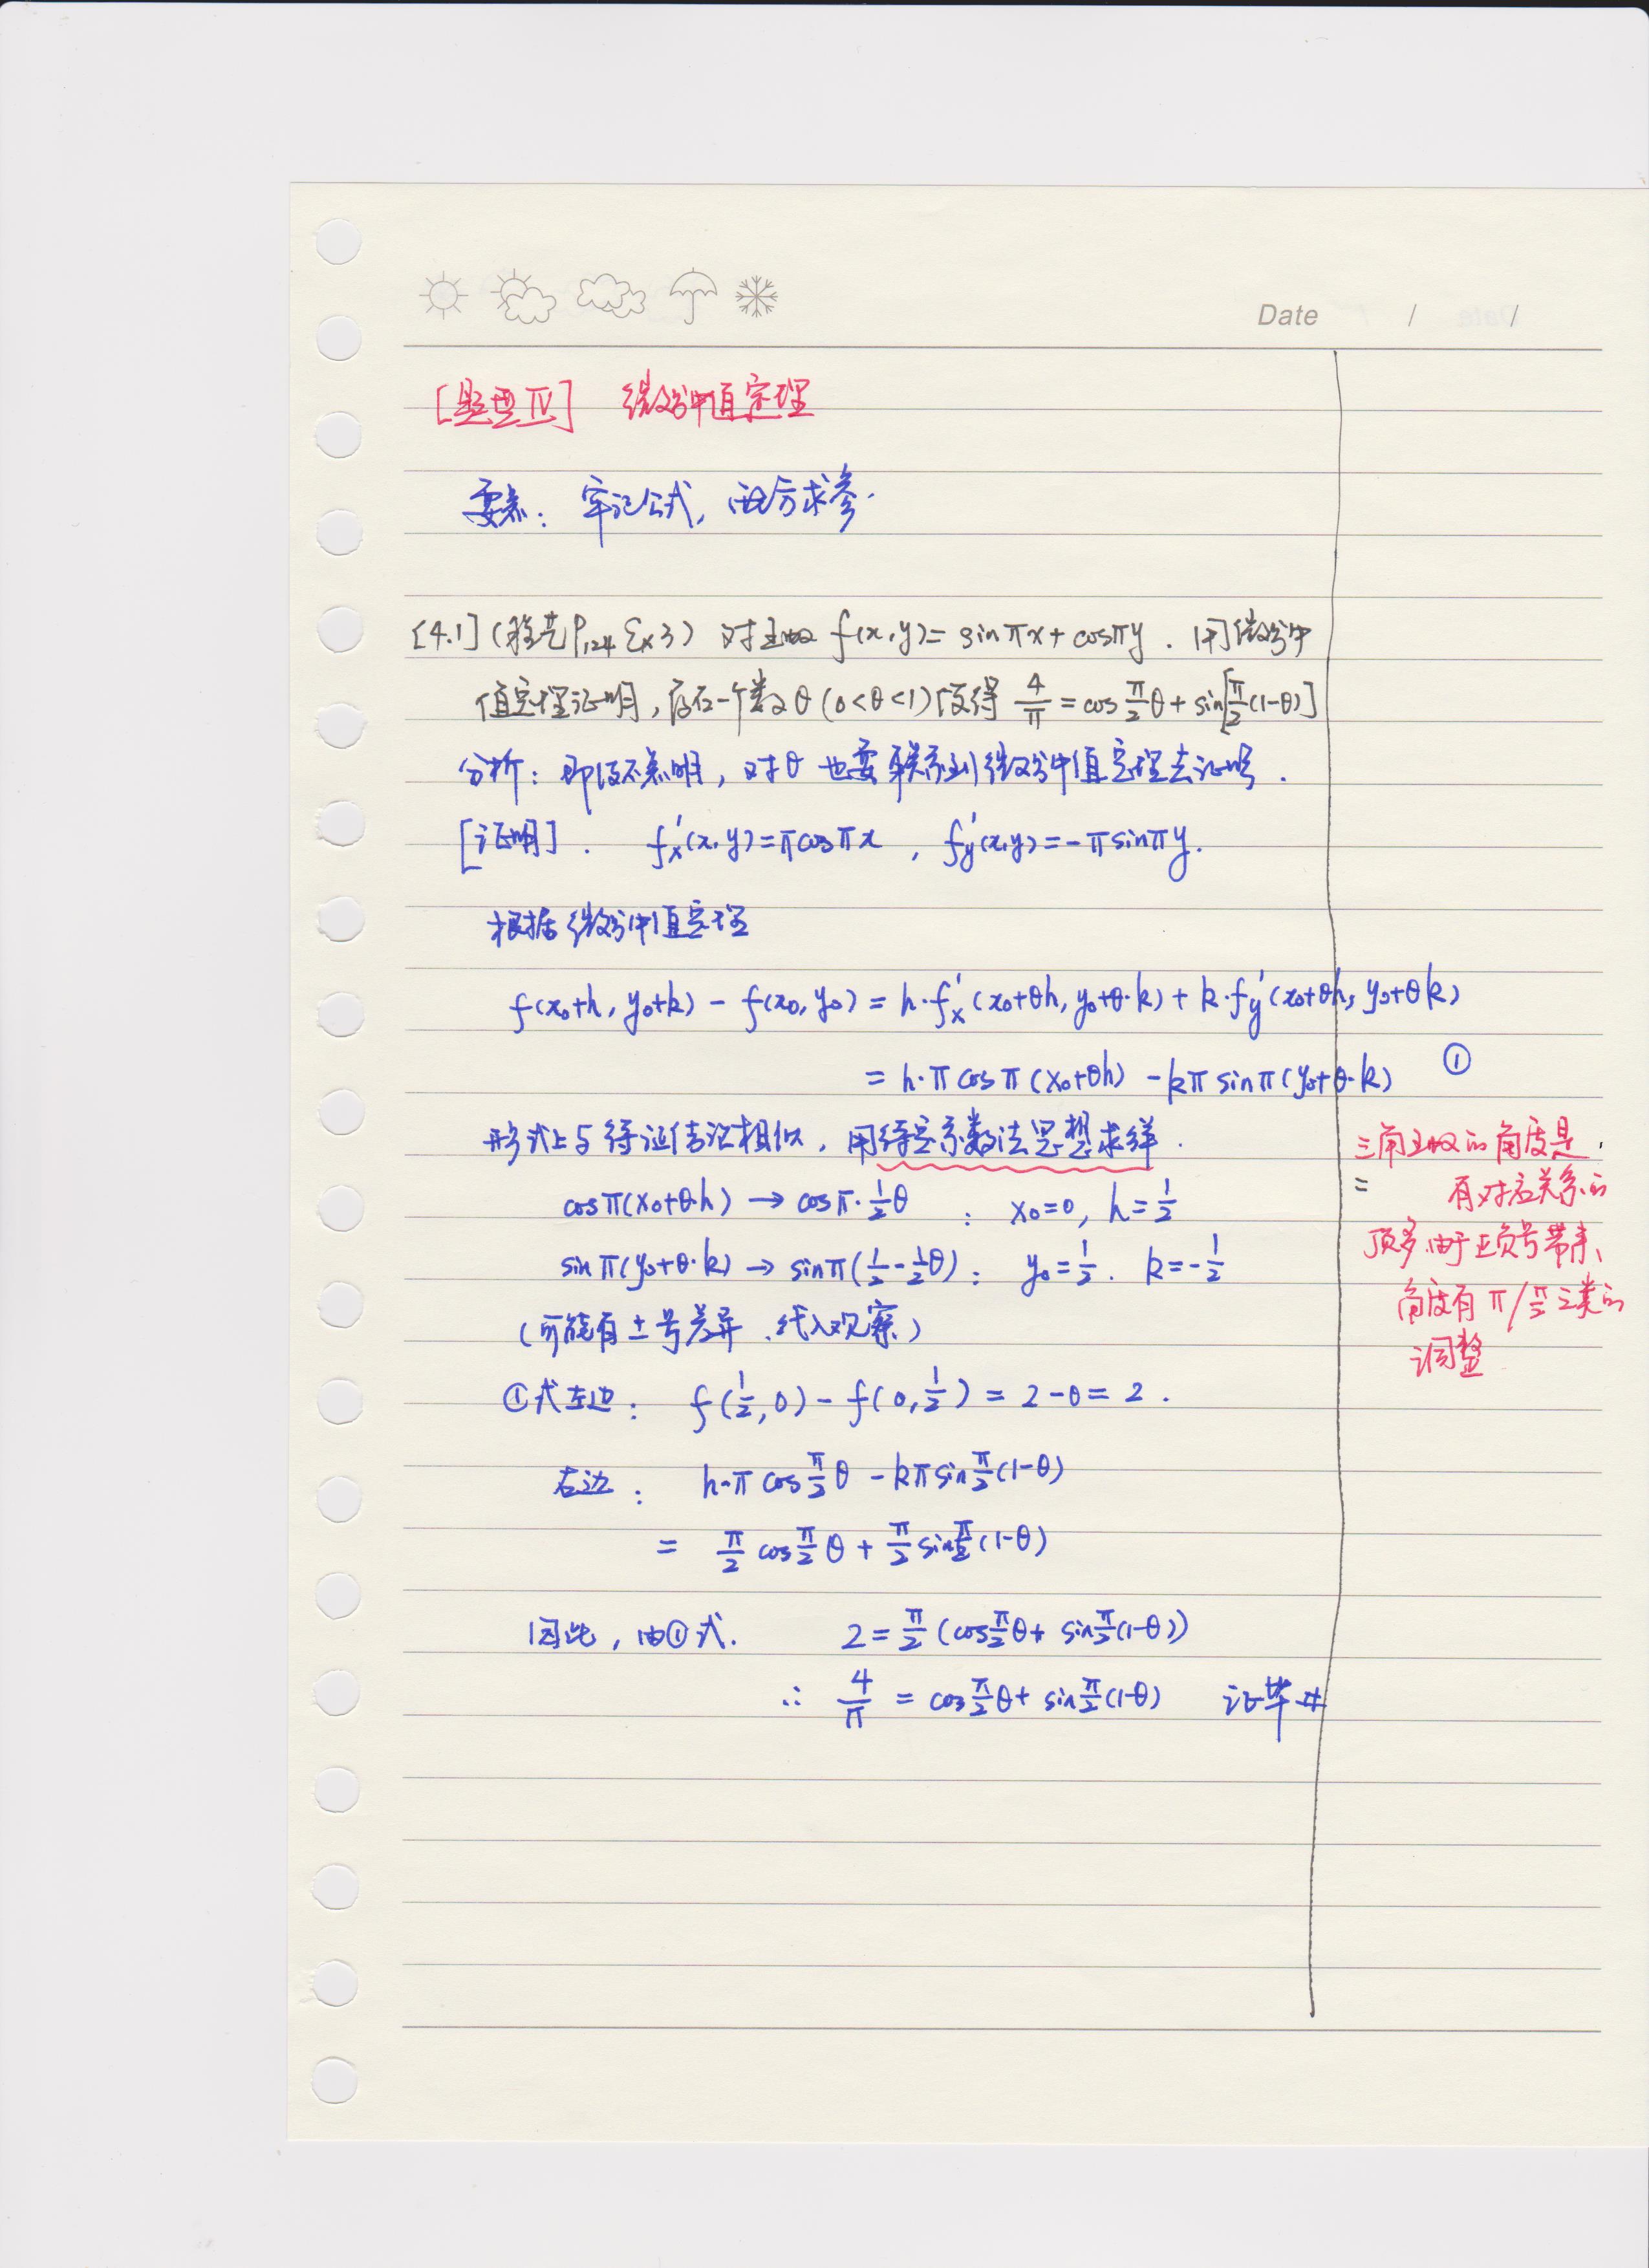 Date / /
[题型Ⅳ] 微分中值定理
要点：牢记公式，配方求参.
[4.1] (程艺P124 Ex3) 对函数 f(x,y)= sinπx + cosπy . 用微分中
值定理证明，存在一个数θ (0<θ<1) 使得 4/π = cos π/2 θ + sin[π/2 (1-θ)]
分析：即使不点明，对θ也要联系到微分中值定理去证明.
[证明]. fx'(x,y)=πcosπx , fy'(x,y)=-πsinπy.
根据微分中值定理
f(x0+h, y0+k) - f(x0, y0) = h·fx'(x0+θh, y0+θ·k) + k·fy'(x0+θh, y0+θk)
= h·π cos π(x0+θh) - kπ sinπ(y0+θ·k) ①
形式上与待证结论相似，用待定系数法思想求解.
cosπ(x0+θ·h) → cosπ·1/2 θ : x0=0, h=1/2
sinπ(y0+θ·k) → sinπ(1/2-1/2θ) : y0=1/2 . k=-1/2
(可能有±号差异，代入观察)
①式左边： f(1/2,0) - f(0,1/2) = 2-0= 2 .
右边： h·π cos π/2 θ - kπ sin π/2 (1-θ)
= π/2 cos π/2 θ + π/2 sin π/2 (1-θ)
因此，由①式. 2 = π/2 (cos π/2 θ + sin π/2 (1-θ))
∴ 4/π = cos π/2 θ + sin π/2 (1-θ) 证毕#
三角函数的角度是
有对应关系的
顶多由于正负号带来
角度有π/ π/2 之类的
调整